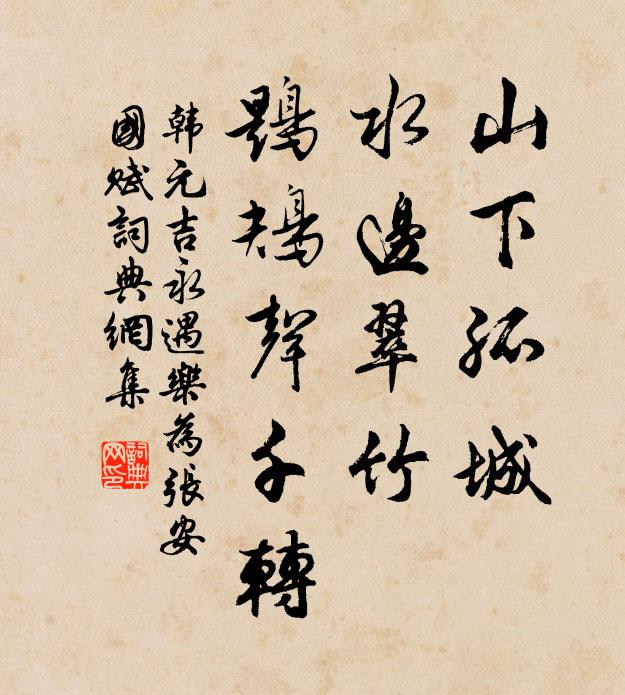 山下孤城
水邊翠竹
鶗鴂聲千轉
韩元吉永遇樂為張安
國賦詞典網集
詞典网印